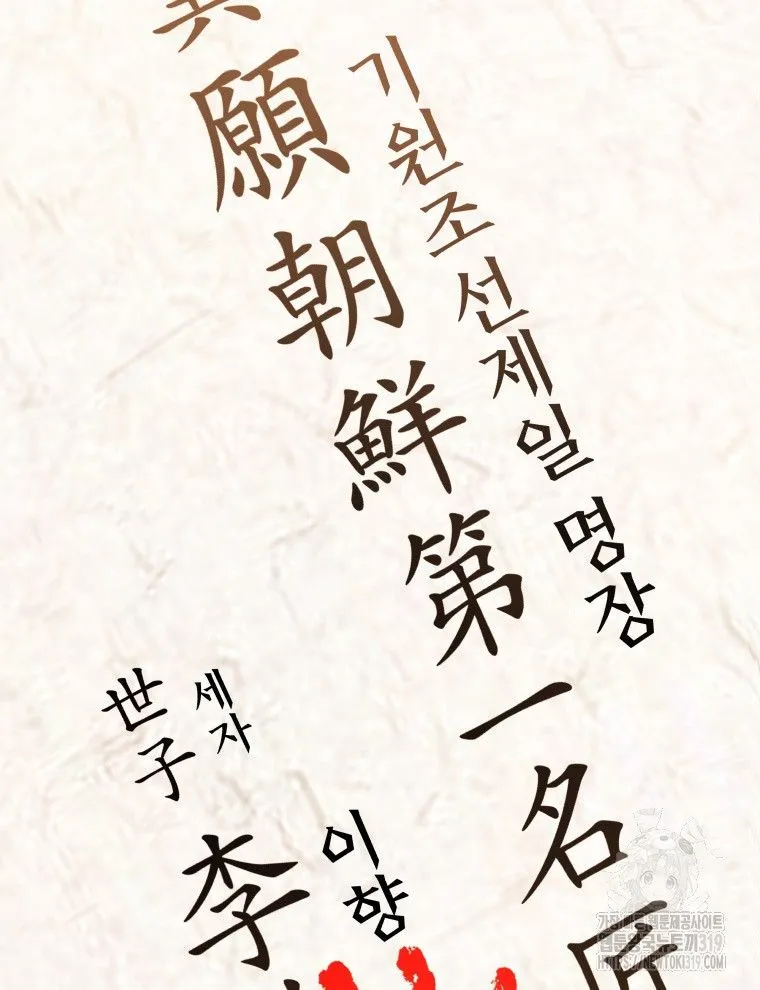 願朝鮮第一名匠
기원조선제일명장
世子
세자
李
이향
가장빠른 웹툰제공사이트
웹툰왕국뉴토끼319
HTTPS://NEWTOKI319.COM